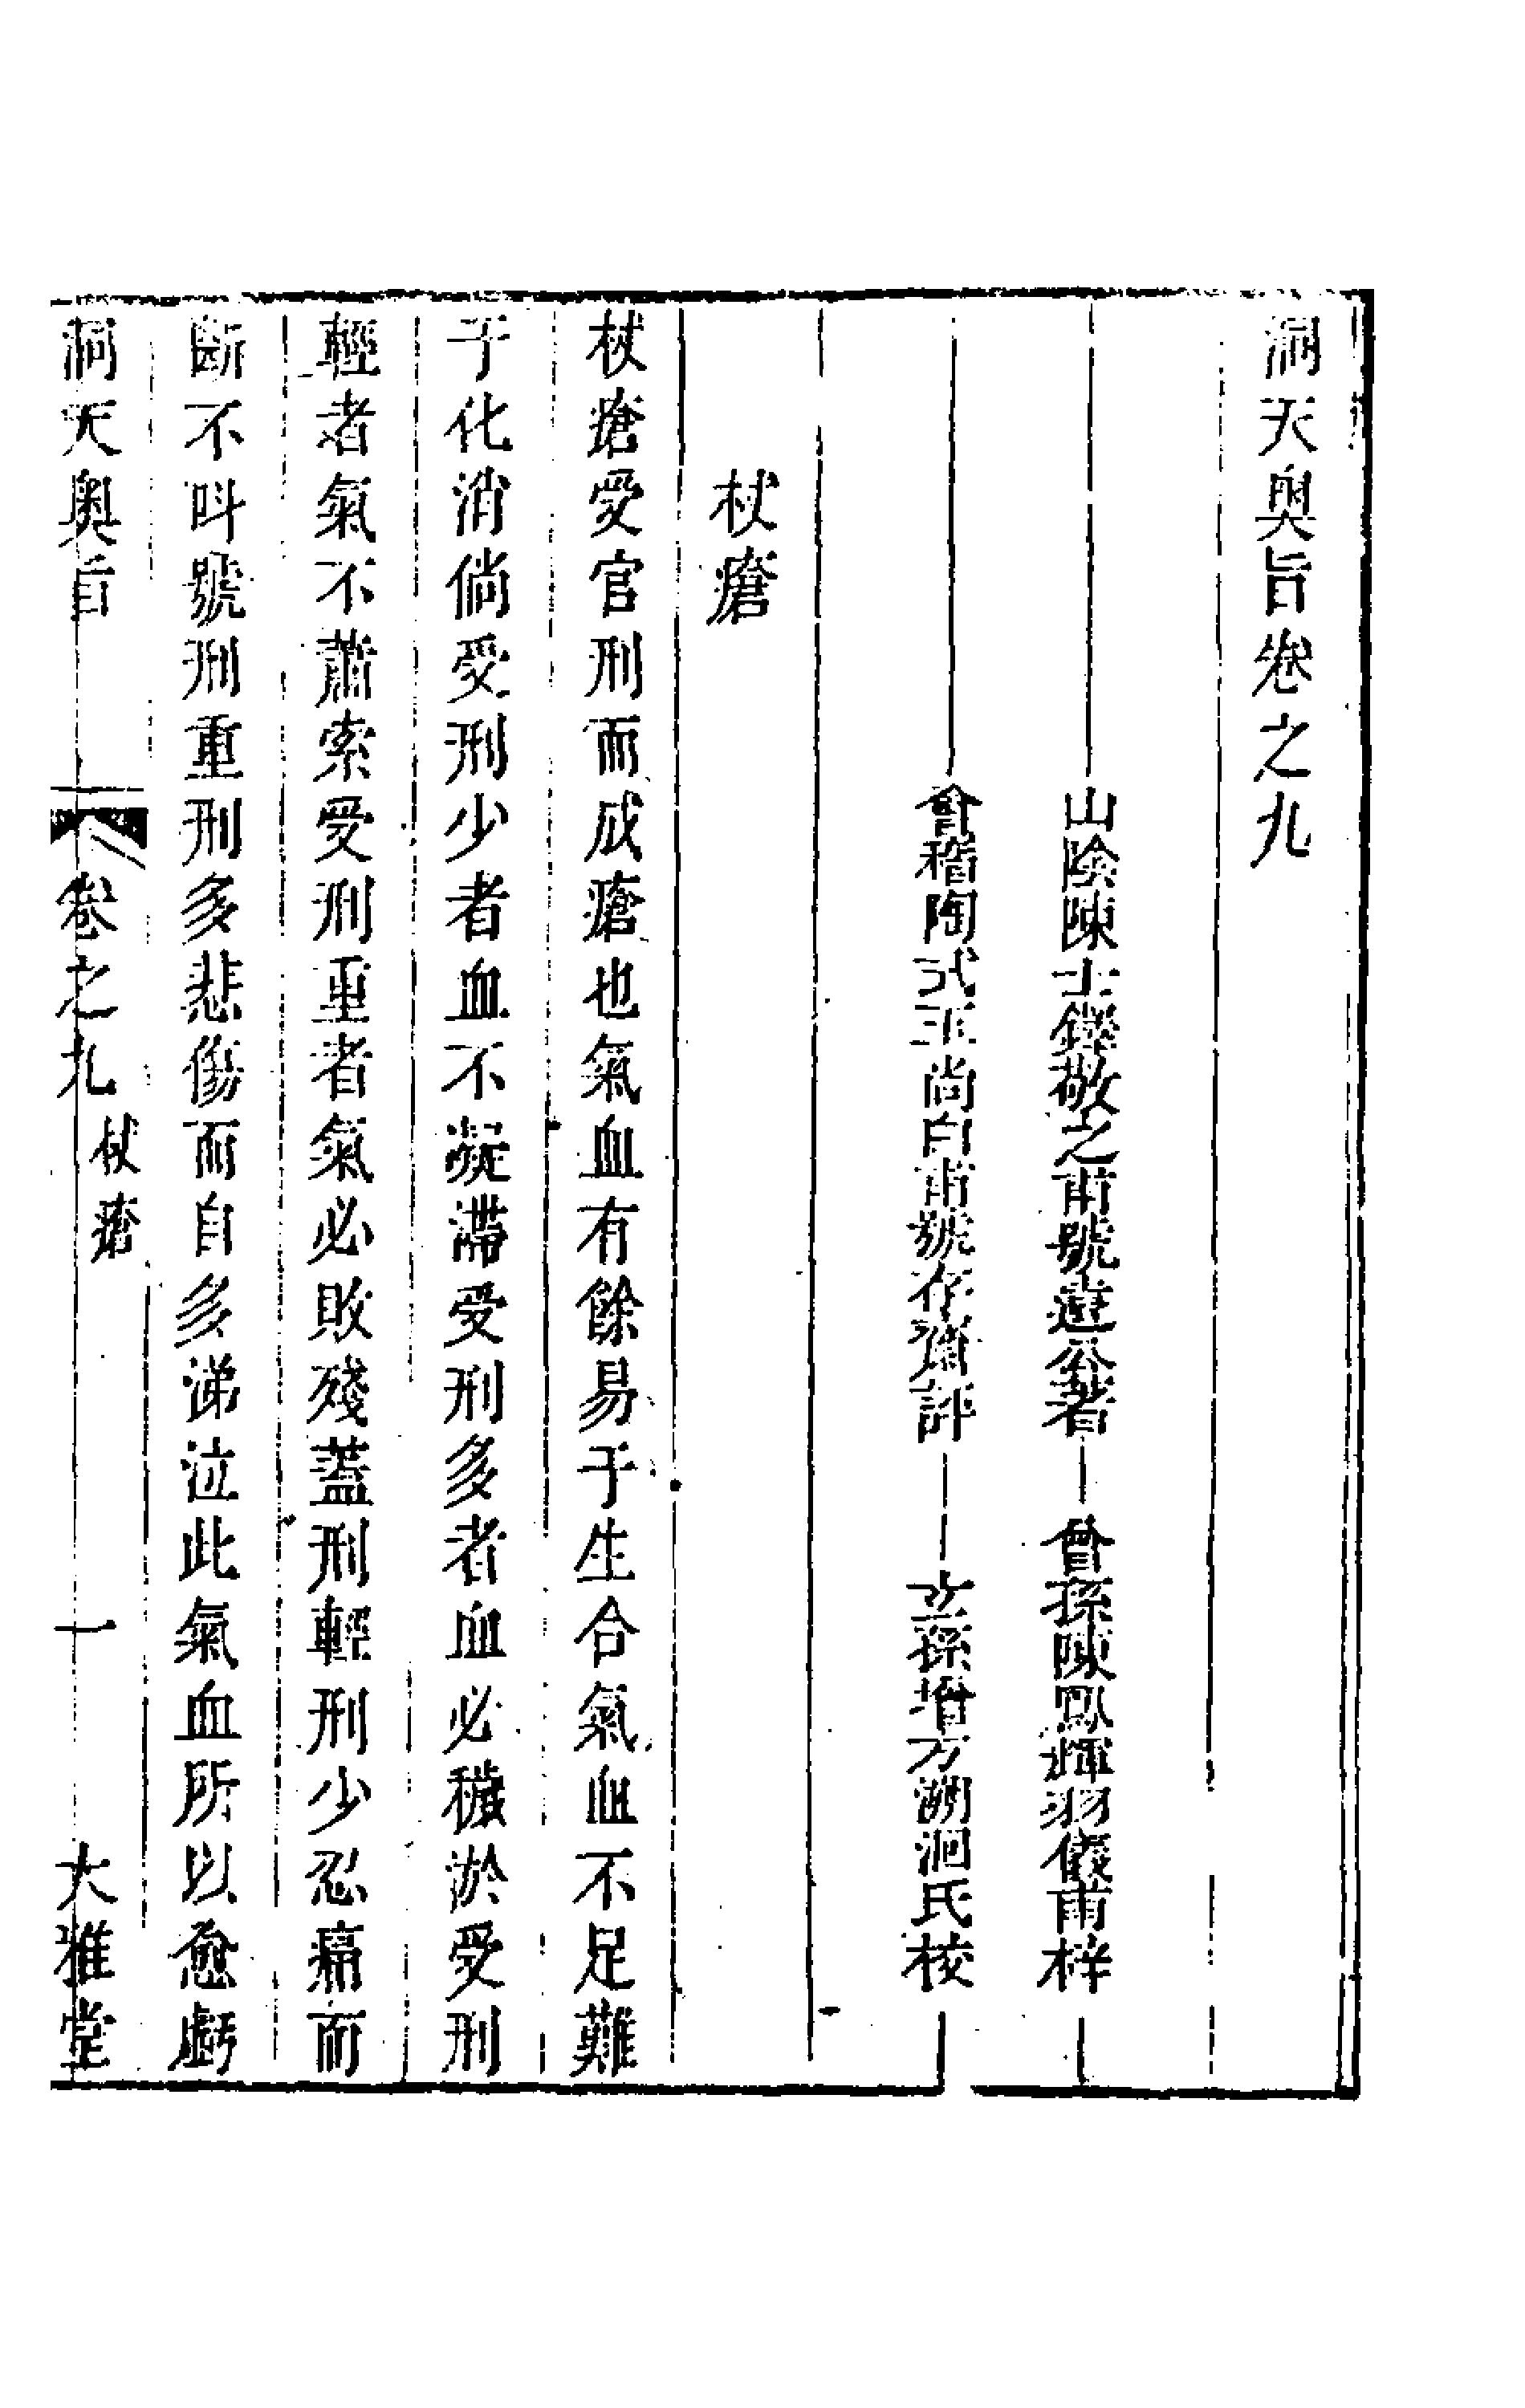 洞天奧旨卷之九
山陰陳士鐸敬之甫號遠公著 曾孫陳鳳輝羽儀甫梓
會稽陶式玉尚白甫號存齋評 玄孫增方溯洄氏校
杖瘡
杖瘡受官刑而成瘡也氣血有餘易于生合氣血不足難
于化消倘受刑少者血不凝滯受刑多者血必穢淤受刑
輕者氣不蕭索受刑重者氣必敗殘蓋刑輕刑少忍痛而
斷不叫號刑重刑多悲傷而自多涕泣此氣血所以愈虧
洞天奧旨 卷之九 杖瘡 一 大雅堂